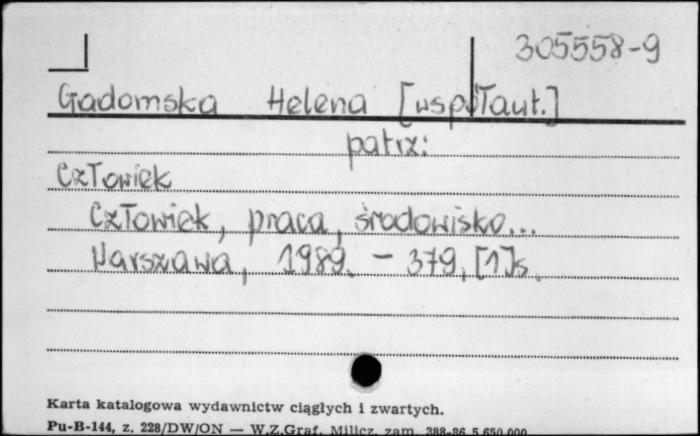 305558-9
Gadomska Helena [współaut.]
patrz:
Człowiek
Człowiek, praca, środowisko...
Warszawa, 1989. - 379, [1]s.
Karta katalogowa wydawnictw ciągłych i zwartych.
Pu-B-144, z. 228/DW/ON — W.Z.Graf. Milicz, zam. 388-86 5.650.000